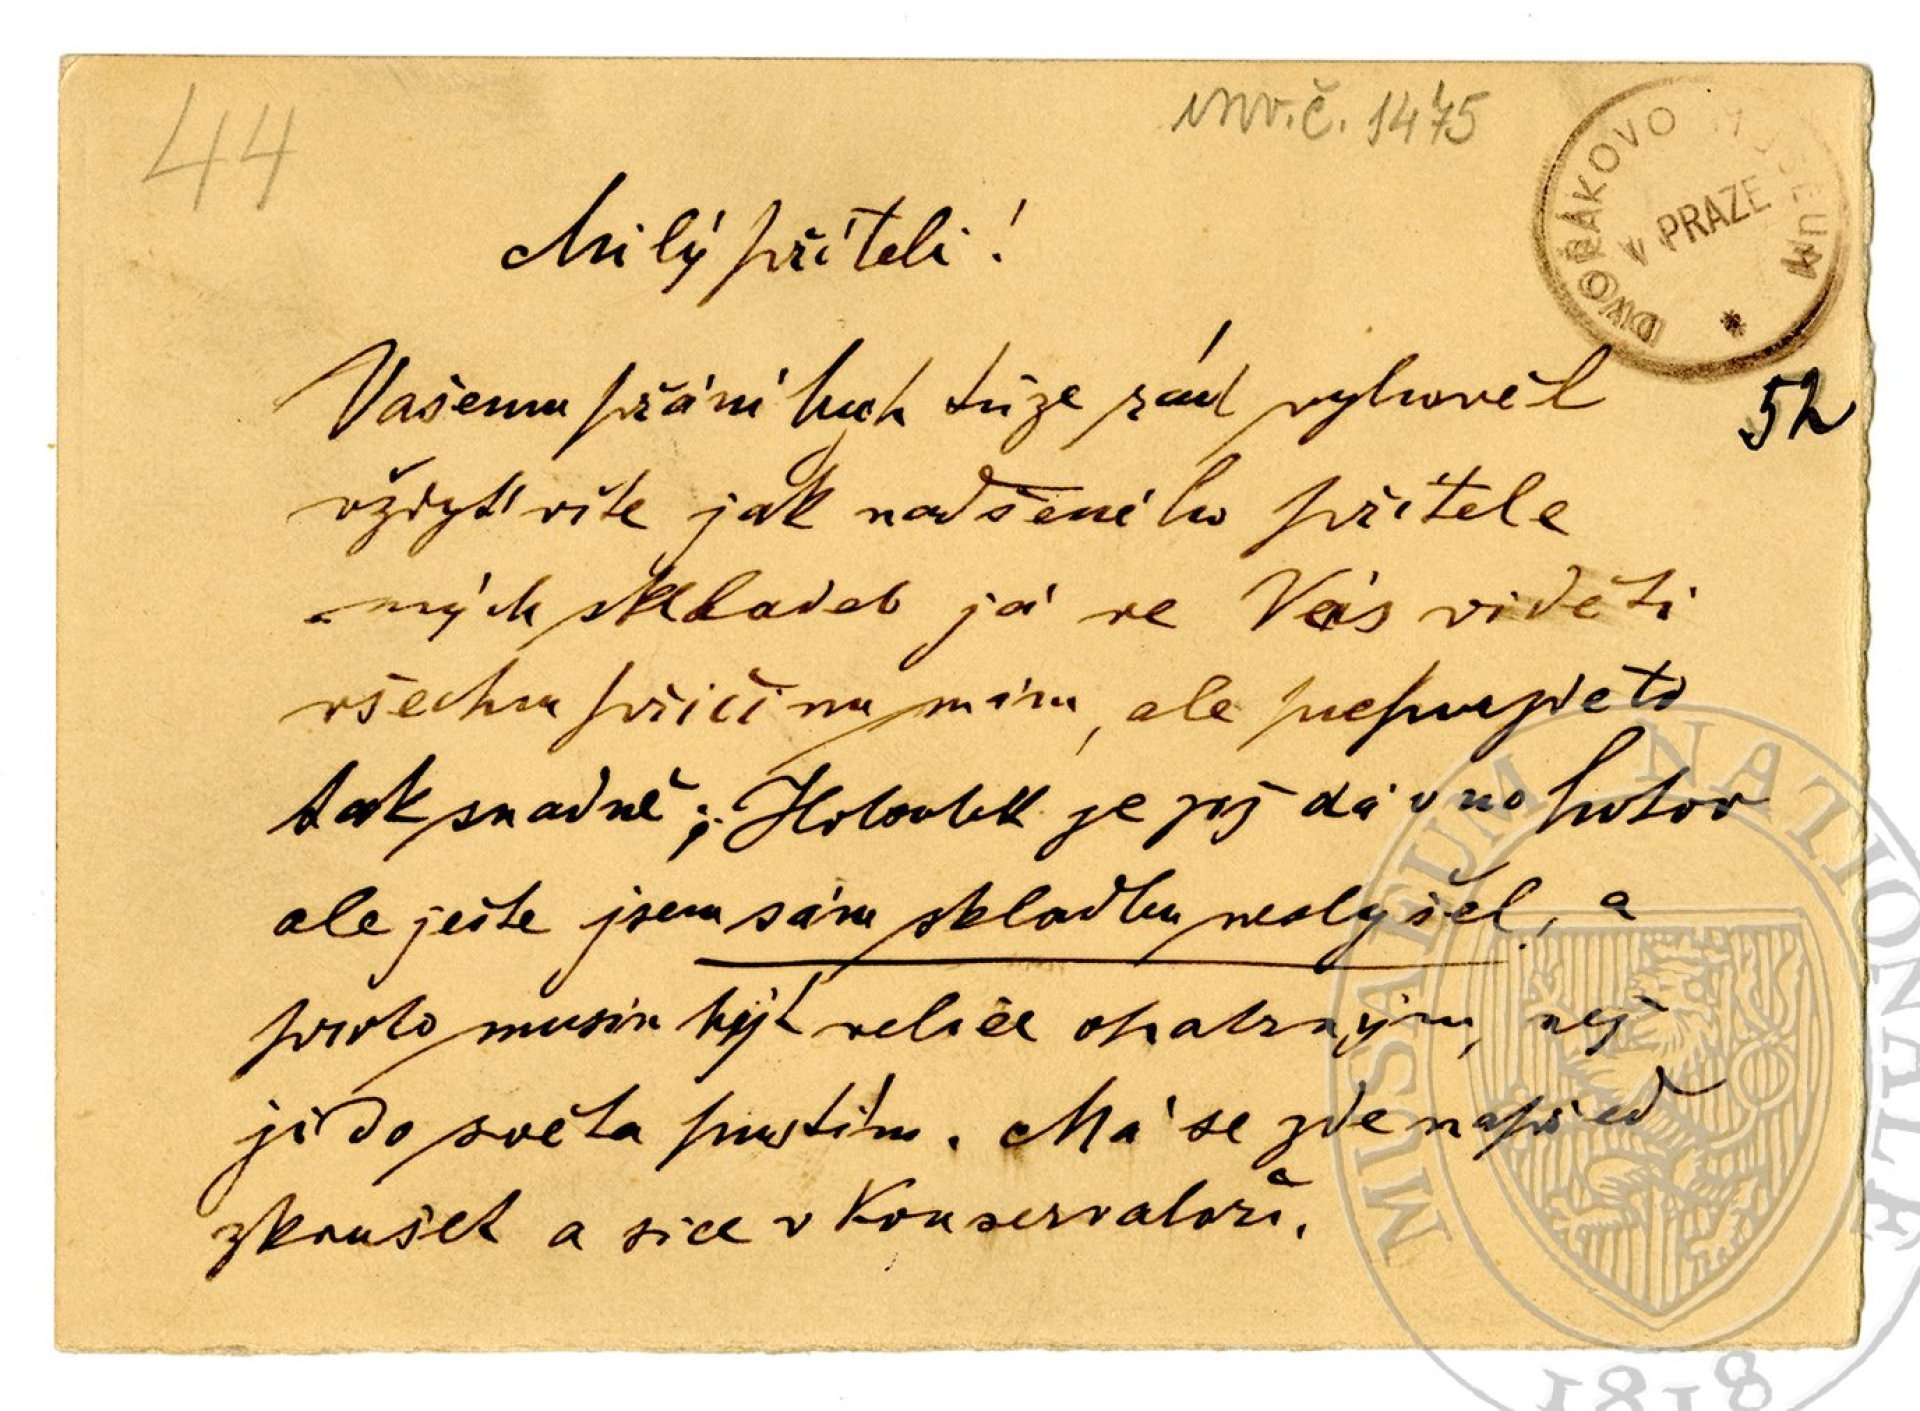 44
inv.č. 1475
DVOŘÁKOVO MUSEUM
V PRAZE
Milý příteli!
52
Vašemu přání bych túze rád vyhověl
vždyť víte jak nadšeného přítele
mých skladeb já ve Vás viděti
všechnu příčinu mám, ale nepůjde to
tak snadně; Holoubek je již dávno hotov
ale ještě jsem sám skladbu neslyšel, a
proto musím být velice opatrným, než
ji do světa pustím. Má se zde napřed
zkoušet a sice v Konservatoři.
MUSAEUM NATIONALE
1818